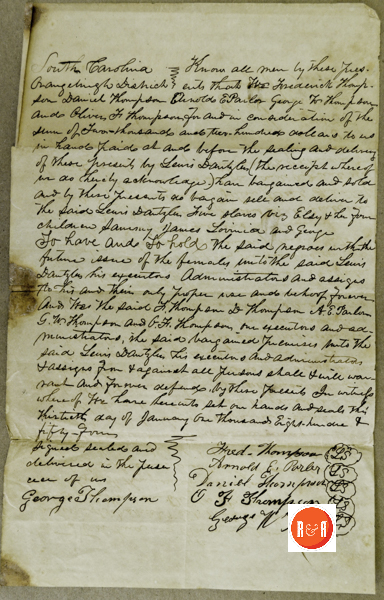 South Carolina Know all men by these Pres-
Orangeburgh District ents that We Frederick Thomp-
son Daniel Thompson Arnold E Parler George W Thompson
and Oliver F Thompson for and in consideration of the
sum of Two thousand and two hundred dollars to us
in hand paid at and before the sealing and delivery
of these presents by Lewis Dantzler (the receipt whereof
we do hereby acknowledge) have bargained and sold
and by these Presents do bargain sell and deliver to
the said Lewis Dantzler Five slaves viz Elsey & her four
children Sammy James Lovinia and George
To have and to hold the said negroes with the
future issue of the females unto the said Lewis
Dantzler his executors Administrators and assigns
to his and their only proper use and behoof forever
And We the said F. Thompson D. Thompson A. E. Parler
G. W Thompson and O. F. Thompson, our executors and ad-
ministrators, the said bargained Premises unto the
said Lewis Dantzler his executors and administrators
& assigns from & against all Persons shall & will war-
rant And forever defend by these Presents In witness
whereof We have hereunto set our hands and seals this
thirtieth day of January one thousand Eight hundred &
fifty four
signed sealed and
delivered in the pres-
ence of us
George Thompson
Fred. Thompson
Arnold E. Parler
Daniel Thompson
O F Thompson
George W
R&R